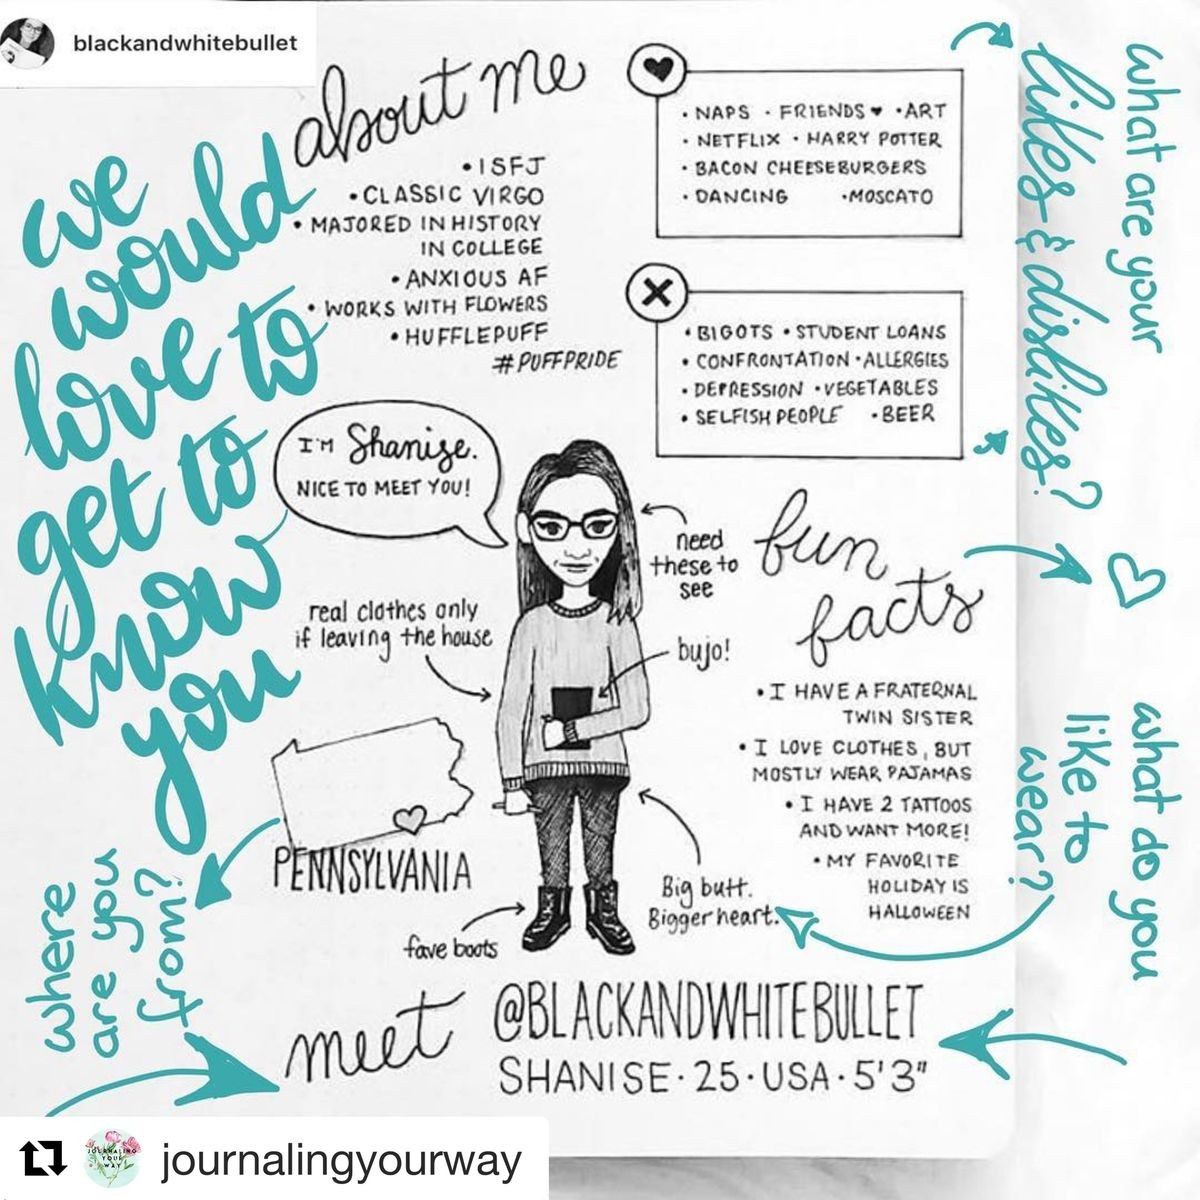 blackandwhitebullet
we
would
love to
get to
know
you
about me
• ISFJ
• CLASSIC VIRGO
• MAJORED IN HISTORY
IN COLLEGE
• ANXIOUS AF
• WORKS WITH FLOWERS
• HUFFLEPUFF
#PUFFPRIDE
• NAPS • FRIENDS ♥ • ART
• NETFLIX • HARRY POTTER
• BACON CHEESEBURGERS
• DANCING • MOSCATO
• BIGOTS • STUDENT LOANS
• CONFRONTATION • ALLERGIES
• DEPRESSION • VEGETABLES
• SELFISH PEOPLE • BEER
what are your
likes & dislikes?
I'M Shanise.
NICE TO MEET YOU!
need
these to
see
real clothes only
if leaving the house
bujo!
fun
facts
• I HAVE A FRATERNAL
TWIN SISTER
• I LOVE CLOTHES, BUT
MOSTLY WEAR PAJAMAS
• I HAVE 2 TATTOOS
AND WANT MORE!
• MY FAVORITE
HOLIDAY IS
HALLOWEEN
what do you
like to
wear?
PENNSYLVANIA
where
are you
from?
Big butt.
Bigger heart.
fave boots
meet @BLACKANDWHITEBULLET
SHANISE • 25 • USA • 5'3"
JOURNALING
YOUR
WAY
journalingyourway